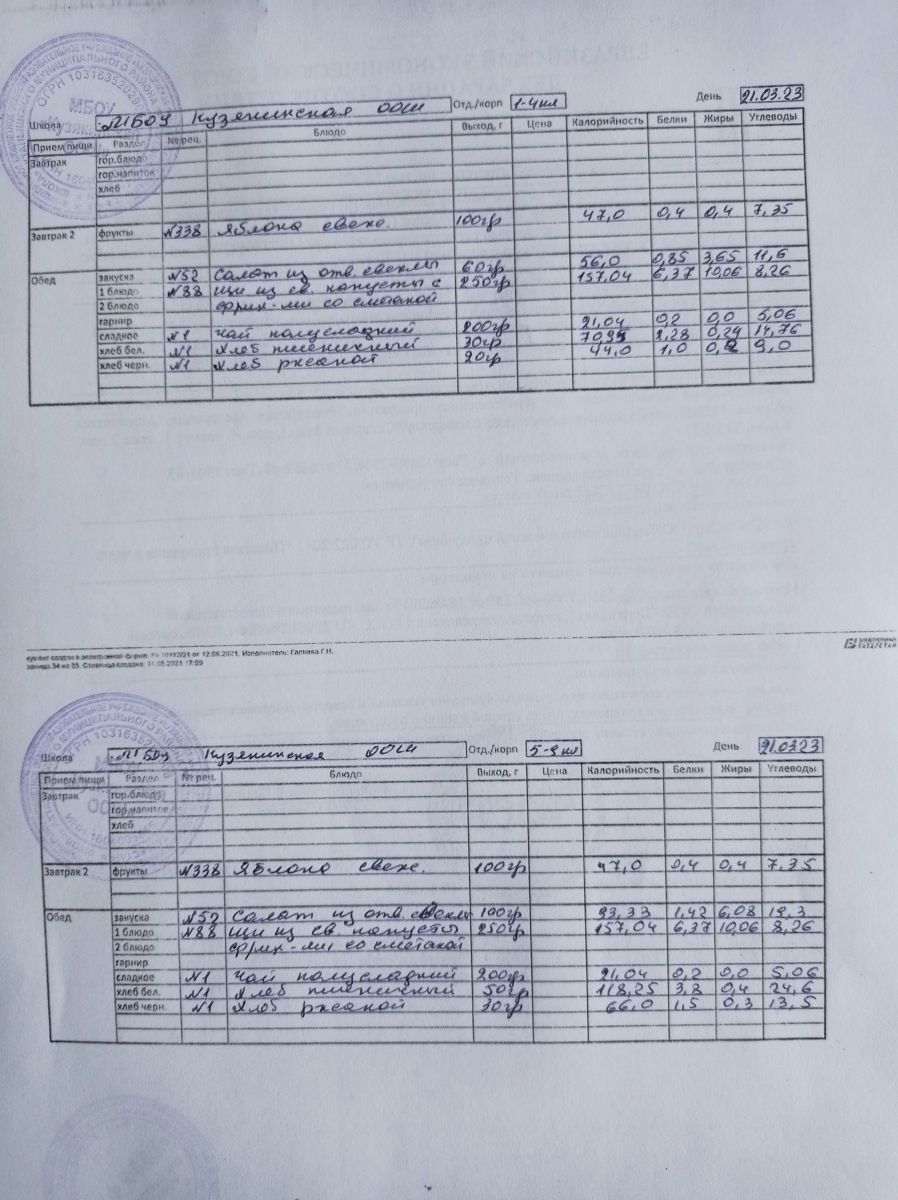 Школа МБОУ Кузякинская ООШ Отд./корп 1-4 кл День 21.03.23
Прием пищи Раздел № рец. Блюдо Выход, г Цена Калорийность Белки Жиры Углеводы
Завтрак гор.блюдо
гор.напиток
хлеб
Завтрак 2 фрукты №338 Яблоко свеже. 100гр 47,0 0,4 0,4 7,35
Обед закуска №52 Салат из отв. свеклы 60гр 56,0 0,85 3,65 11,6
1 блюдо №88 Щи из св. капусты с 250гр 157,04 6,37 10,06 8,26
2 блюдо фрик-ми со сметаной
гарнир
сладкое №1 Чай полусладкий 200гр 21,04 0,2 0,0 5,06
хлеб бел. №1 Хлеб пшеничный 30гр 70,95 2,28 0,24 14,76
хлеб черн. №1 Хлеб ржаной 20гр 44,0 1,0 0,2 9,0
кумент создан в электронной форме. от 12.08.2021. Исполнитель: Галиева Г.Н.
раница 34 из 35. Страница создана: 11.08.2021 17:09
ЭЛЕКТРОННЫЙ
ТАТАРСТАН
Школа МБОУ Кузякинская ООШ Отд./корп 5-9 кл День 21.03.23
Прием пищи Раздел № рец. Блюдо Выход, г Цена Калорийность Белки Жиры Углеводы
Завтрак гор.блюдо
гор.напиток
хлеб
Завтрак 2 фрукты №338 Яблоко свеже. 100гр 47,0 0,4 0,4 7,35
Обед закуска №52 Салат из отв. свеклы 100гр 93,33 1,42 6,08 19,3
1 блюдо №88 Щи из св. капусты 250гр 157,04 6,37 10,06 8,26
2 блюдо фрик-ми со сметаной
гарнир
сладкое №1 Чай полусладкий 200гр 21,04 0,2 0,0 5,06
хлеб бел. №1 Хлеб пшеничный 50гр 118,25 3,8 0,4 24,6
хлеб черн. №1 Хлеб ржаной 30гр 66,0 1,5 0,3 13,5